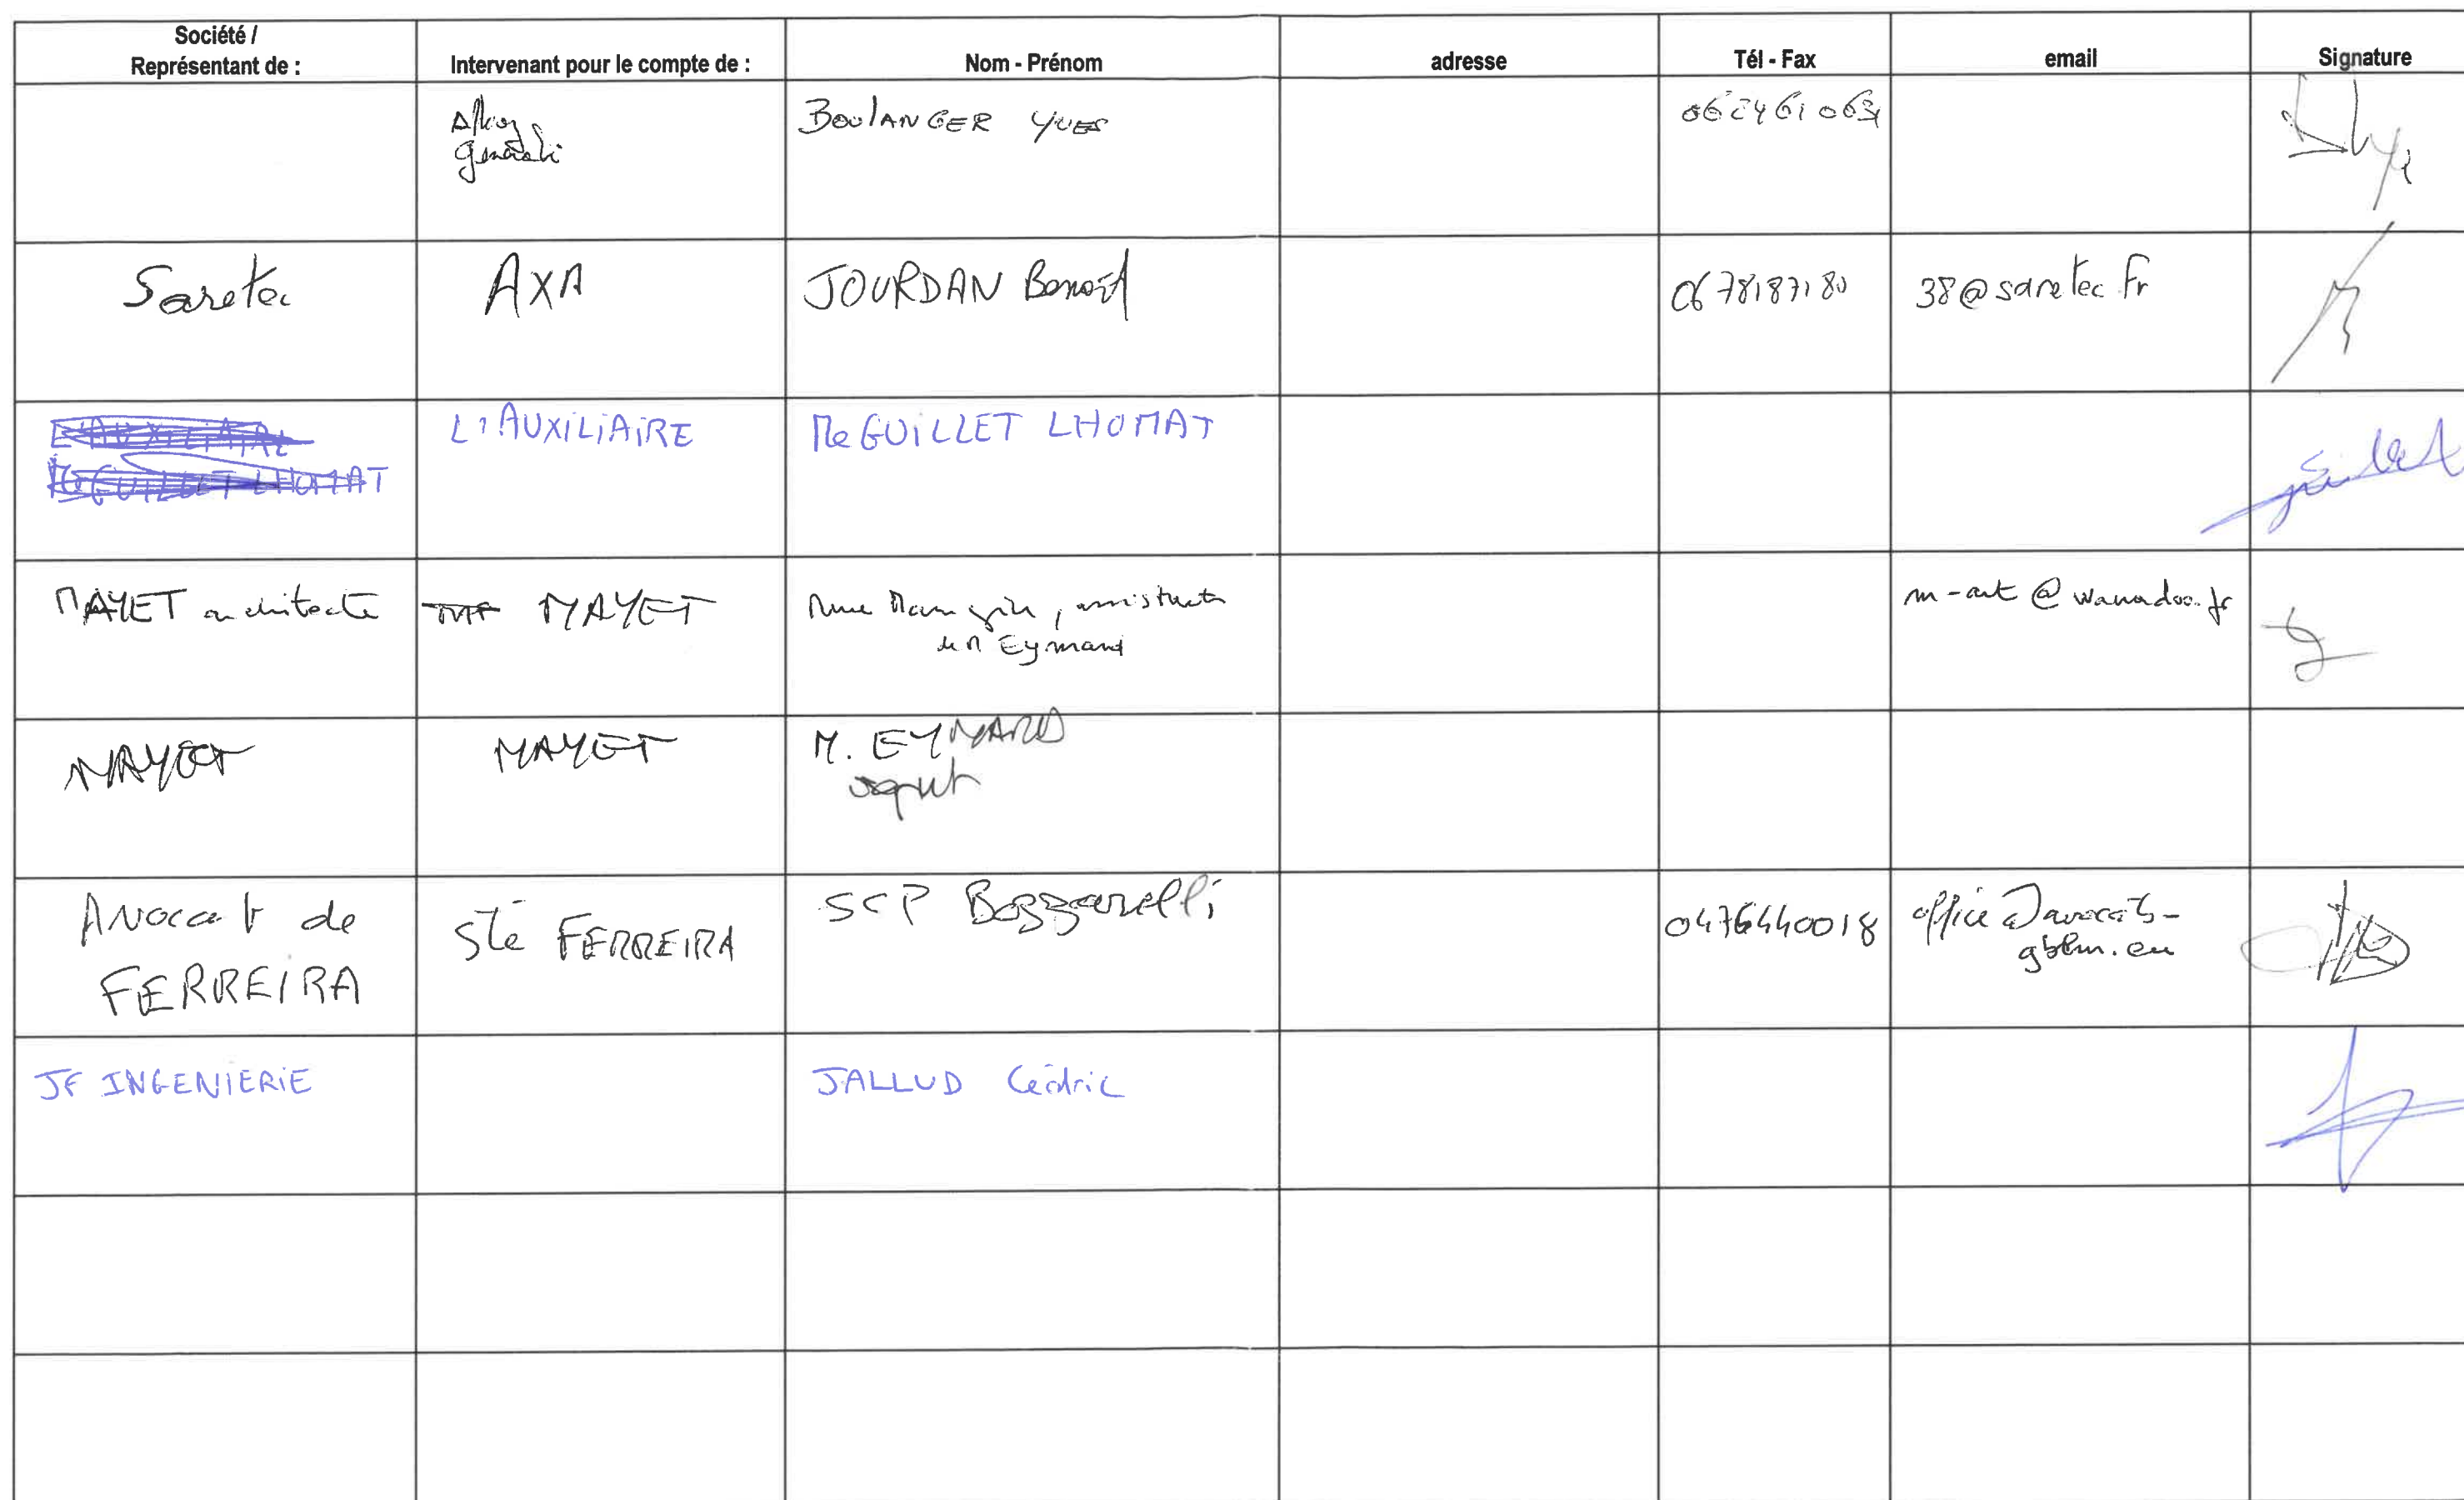 Société /
Représentant de :
Intervenant pour le compte de :
Nom - Prénom
adresse
Tél - Fax
email
Signature
generali
BOULANGER YVES
Saretec
AXA
JOURDAN Benoit
0678187180
38@saretec.fr
L'AUXILIAIRE
Me GUILLET LHOMAT
L'AUXILIAIRE
Me GUILLET LHOMAT
MAYET architecte
MAYET
Mme Mangin, assistante
de M Eymard
m-art@wanadoo.fr
MAYET
MAYET
M. EYMARD
Avocat de
FERREIRA
Sté FERREIRA
SCP Bozzarelli
0476440018
office@avocats-
gblm.eu
JF INGENIERIE
JALLUD Cédric